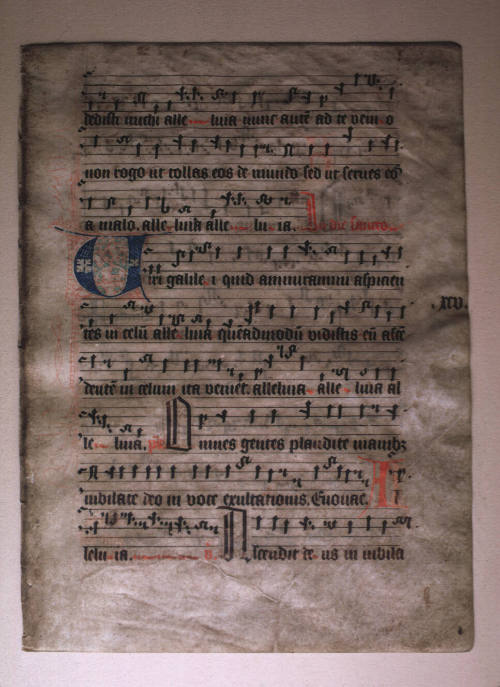 dedisti michi alle luia nunc autē ad te venio
non rogo ut tollas eos de mundo sed ut serves eos
a malo. alle luia alle lu ia. In die
Viri galile i quid ammiramini aspicien
xv.
tes in celū alle luia quēadmodū vidistis eū ascē
dentē in celum ita veniet. alleluia alle luia al
le luia. ps Omnes gentes plaudite manibꝫ
iubilate deo in voce exultationis. Euouae. Al
lelu ia. Ascendit de us in iubila